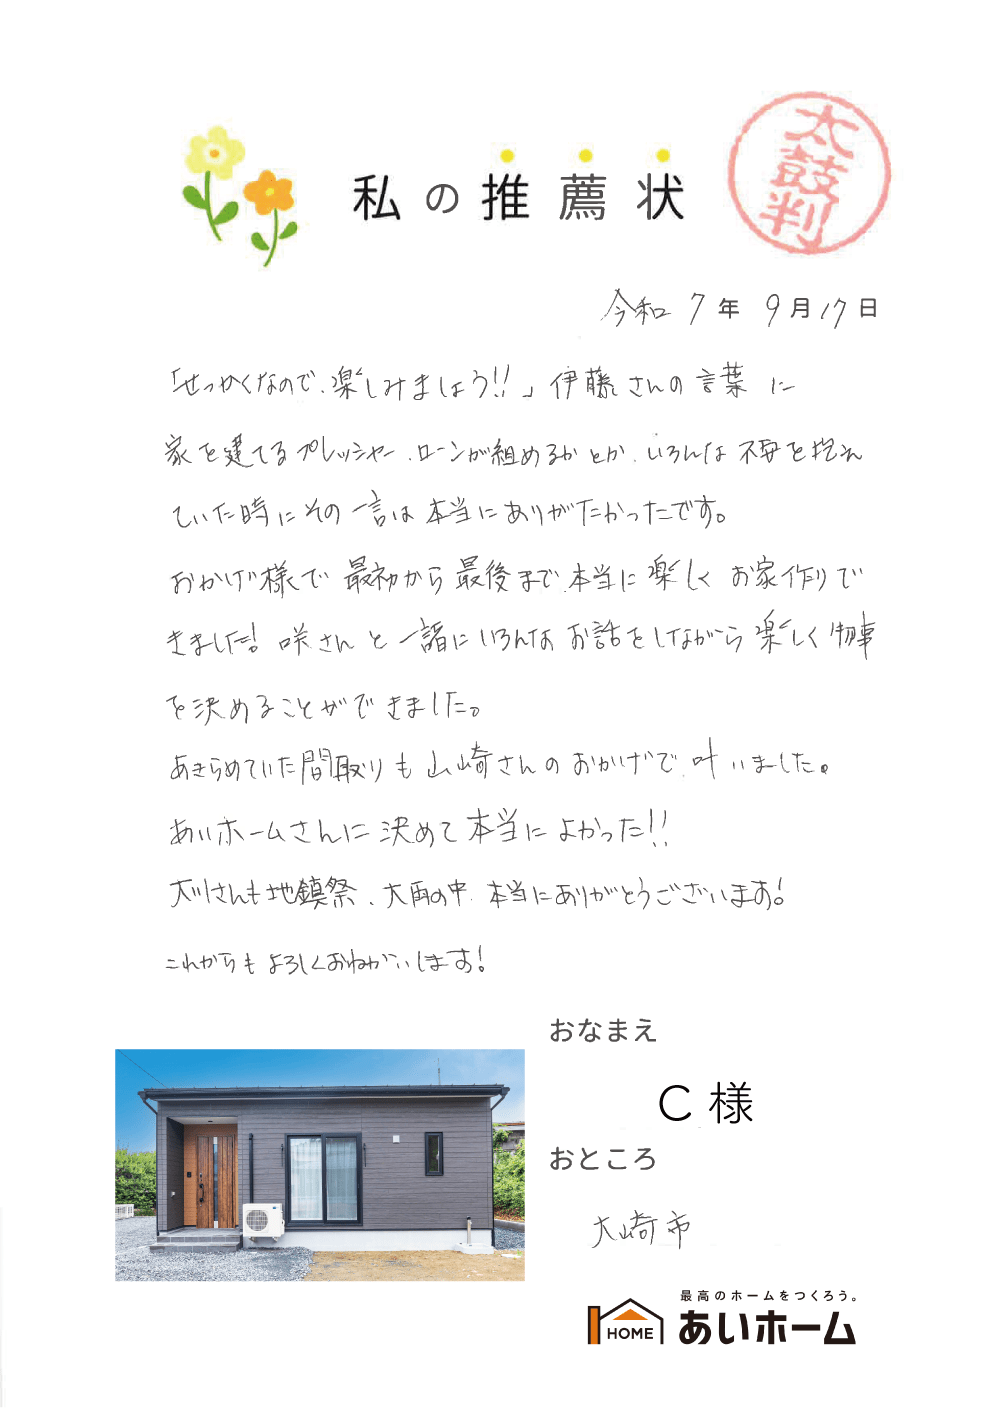 私の推薦状
太鼓判
令和 7年 9月17日
「せっかくなので、楽しみましょう!!」伊藤さんの言葉に
家を建てるプレッシャー、ローンが組めるかとか、いろんな不安を抱え
ていた時にその一言は本当にありがたかったです。
おかげ様で最初から最後まで、本当に楽しくお家作りで
きました!咲さんと一諸にいろんなお話をしながら楽しく物事
を決めることができました。
あきらめていた間取りも山崎さんのおかげで、叶いました。
あいホームさんに決めて本当によかった!!
さんも地鎮祭、大雨の中、本当にありがとうございます!
これからもよろしくおねがいします!
おなまえ
C様
おところ
大崎市
最高のホームをつくろう。
HOME あいホーム